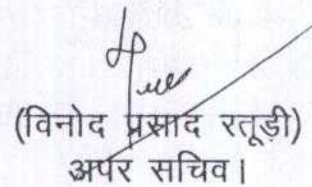 (विनोद प्रसाद रतूड़ी)
अपर सचिव।